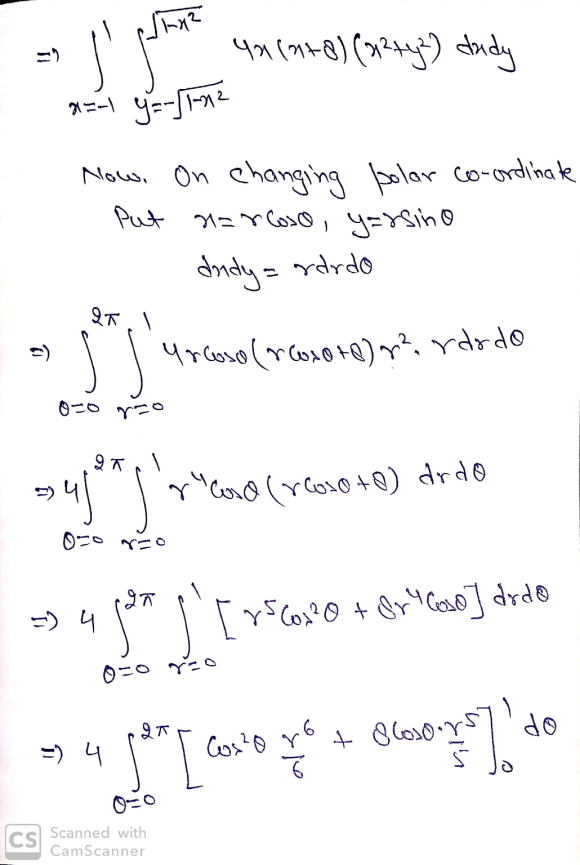 => ∫_{x=-1}^{1} ∫_{y=-√(1-x²)}^{√(1-x²)} 4x(x+8)(x²+y²) dxdy
Now. On changing polar co-ordinate
Put x = r Cosθ, y = r Sinθ
dxdy = rdrdθ
=> ∫_{θ=0}^{2π} ∫_{r=0}^{1} 4r Cosθ (r Cosθ+8) r². rdrdθ
=> 4 ∫_{θ=0}^{2π} ∫_{r=0}^{1} r⁴ Cosθ (r Cosθ+8) drdθ
=> 4 ∫_{θ=0}^{2π} ∫_{r=0}^{1} [r⁵ Cos²θ + 8r⁴ Cosθ] drdθ
=> 4 ∫_{θ=0}^{2π} [Cos²θ r⁶/6 + 8 Cosθ. r⁵/5]_0^1 dθ
CS Scanned with
CamScanner